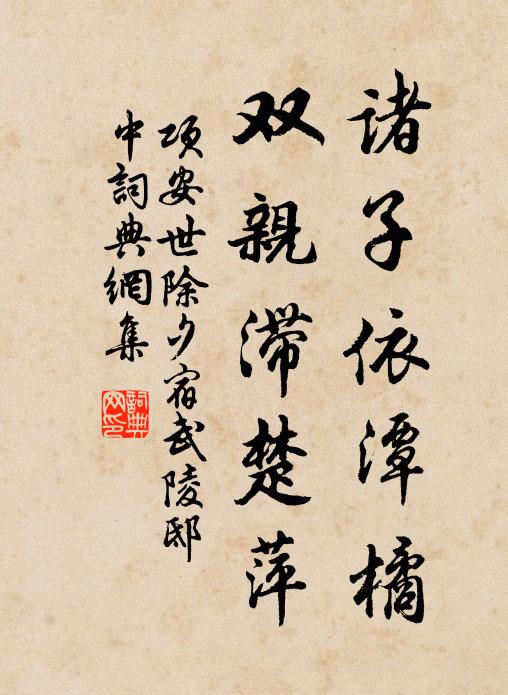 诸子依潭橘
双親滞楚萍
项安世除夕宿武陵邸
中詞典網集
詞典网印